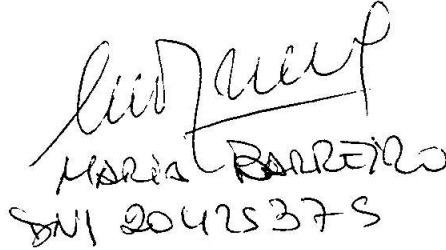 MARIA BARREIRO
DNI 20425375